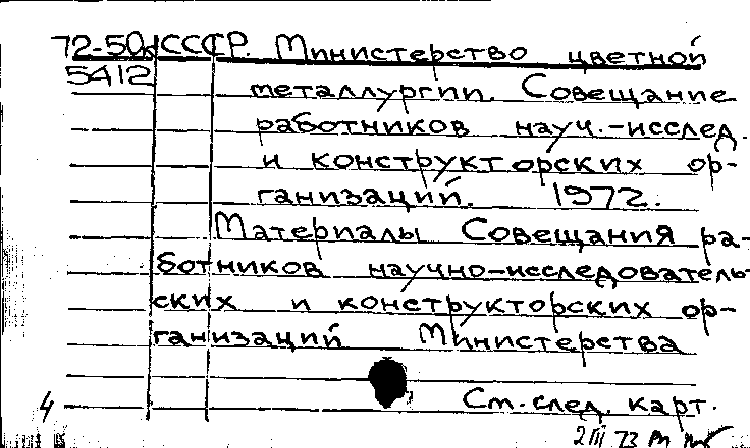 72-50д СССР. Министерство цветной
5412
металлургии. Совещание
работников науч.-исслед.
и конструкторских ор-
ганизаций. 1972.
Материалы Совещания ра-
ботников научно-исследователь-
ских и конструкторских ор-
ганизаций Министерства
См. след. карт.
4
2 III 73